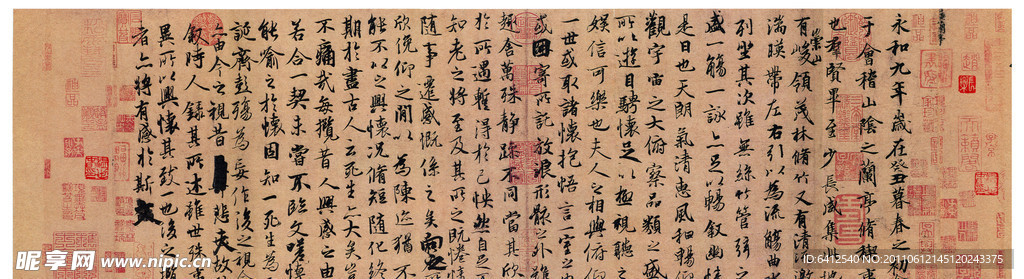 永和九年歲在癸丑暮春之初
于會稽山陰之蘭亭脩稧事
也羣賢畢至少長咸集此
崇山
有峻領茂林脩竹又有清流
湍暎帶左右引以為流觴曲
列坐其次雖無絲竹管弦
盛一觴一詠亦足以暢叙幽情
是日也天朗氣清惠風和暢
觀宇宙之大俯察品類之盛
所以遊目騁懷足以極視聽之
娛信可樂也夫人之相與俯仰
一世或取諸懷抱悟言一室之
或因寄所託放浪形骸之外雖
趣舍萬殊静躁不同當其欣
於所遇暫得於己怏然自足
知老之將至及其所之既惓情
隨事遷感慨係之矣向之
欣俛仰之閒以為陳迹猶不
能不以之興懷況脩短隨化終
期於盡古人云死生亦大矣豈
不痛哉每攬昔人興感之由
若合一契未嘗不臨文嗟悼
能喻之於懷固知一死生為
誕齊彭殤為妄作後之視
亦由今之視昔悲夫故
叙時人錄其所述雖世殊
異所以興懷其致一也後之
者亦將有感於斯文
昵享网 www.nipic.cn
ID:6412540 NO:20110612145120243375